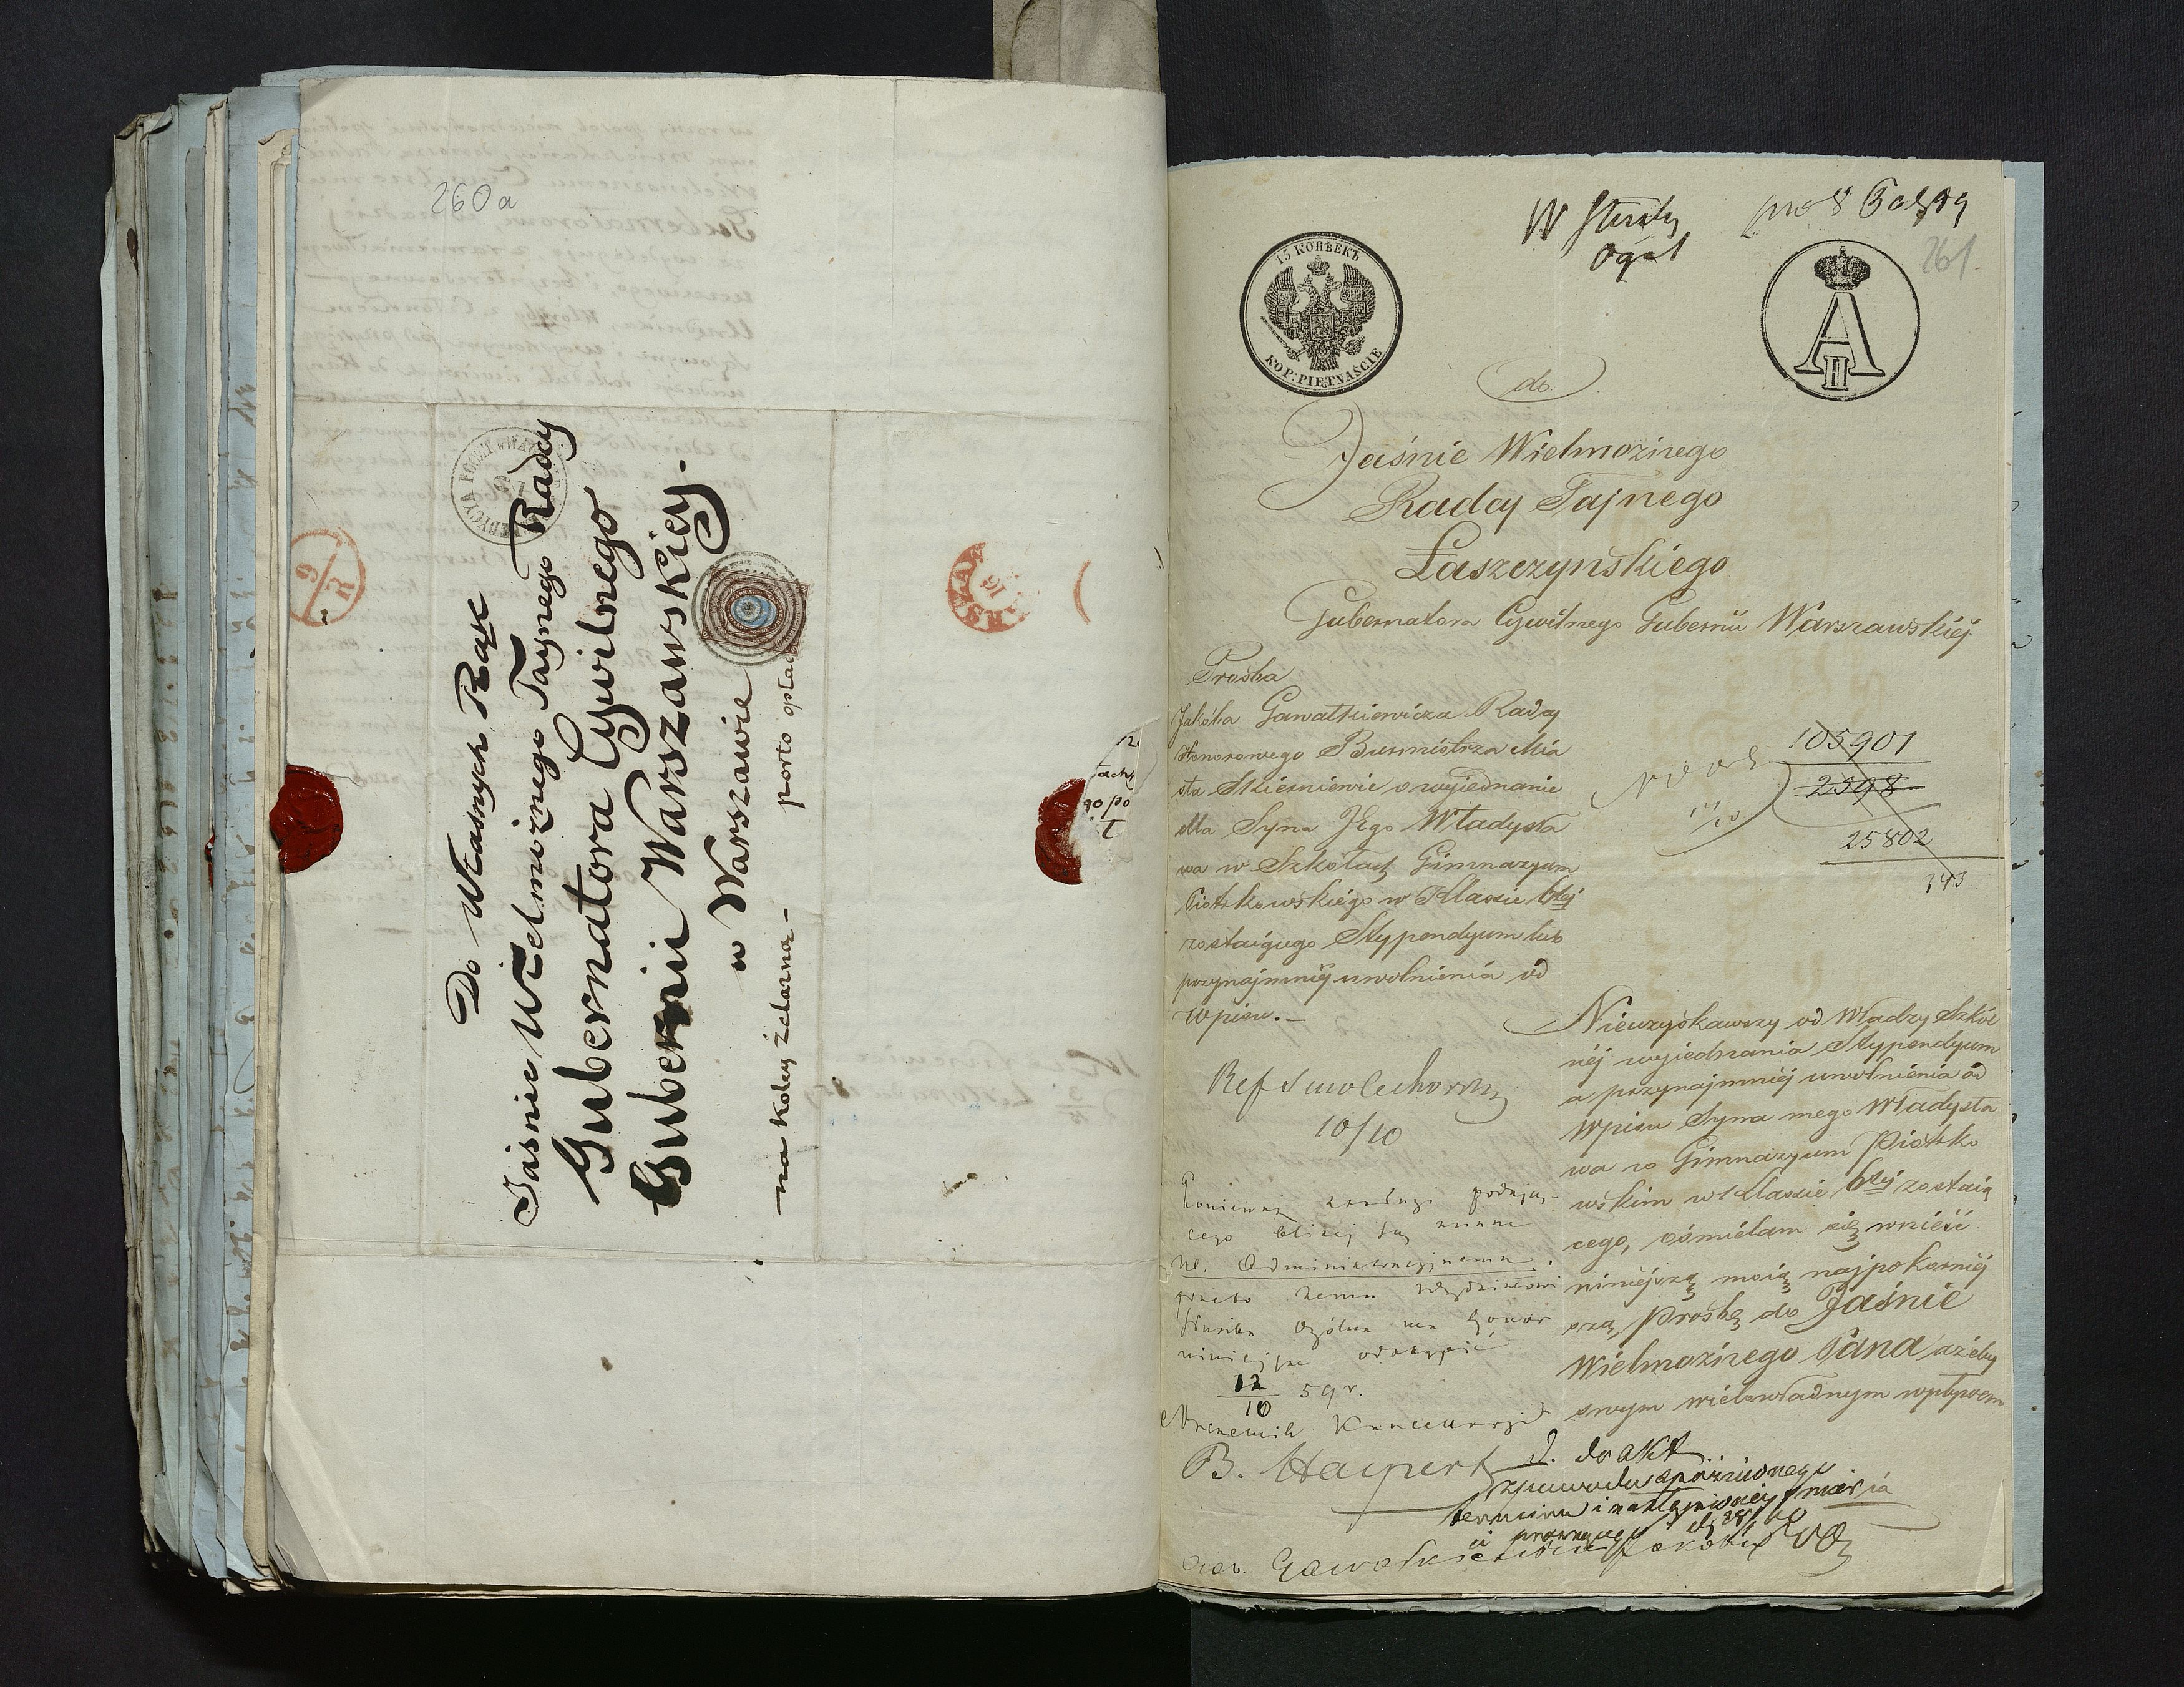 260a
Do Własnych Rąk
Jaśnie Wielmożnego Taynego Rady
Gubernatora Cywilnego
Gubernii Warszawskiey.
w Warszawie
na koley żelazna - porto opła
12
tachy
go po
261.
15 КОПѢЕКЪ
KOP: PIĘTNAŚCIE
A II
do
Jaśnie Wielmożnego
Radcy Tajnego
Łaszczyńskiego
Gubernatora Cywilnego Gubernii Warszawskiéj.
Prośba
Jakóba Gawałkiewicza Radcy
Honorowego Burmistrza Mia
sta Skierniewic o wyjednanie
dla Syna Jégo Władysła
wa w Szkołach Gimnazyum
Piotrkowskiégo w Klassie 6téj
zostaiącego Stypendyum lub
przynajmniéj uwolnienia od
wpisu.-
105901
2598
25802
343
Ref Smolechowski
10/10
Ponieważ zasługi podają-
cego bliżéj są znane
Wł. Administracyjnemu,
przeto temu Wydziałowi
Służba Ogólna ma honor
niniejsze odstąpić
12/10 59 r.
Naczelnik Kancellaryi
B. Halpert
Nieuzyskawszy od Władzy Szkól
néj wyiednania Stypendyum
a przynajmniéj uwolnienia od
Wpisu Syna mego Władysła
wa w Gimnazyum Piotrko
wskim w Klassie 6téj zostaią
cego, ośmielam się wnieść
niniejszą moią najpokorniéj
szą, Prośbę do Jaśnie
Wielmożnego Pana ażeby
swym wielowładnym wpływem
do akt
z powodu spóźnionego
terminu i nastąpionéj śmierci